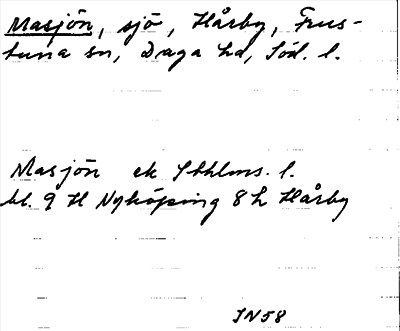 Masjön, sjö, Hårby, Frus-
tuna sn, Daga hd, Söd. l.
Masjön ek Sthlms. l.
bl. 9 H Nyköping 8 h Hårby
JN58